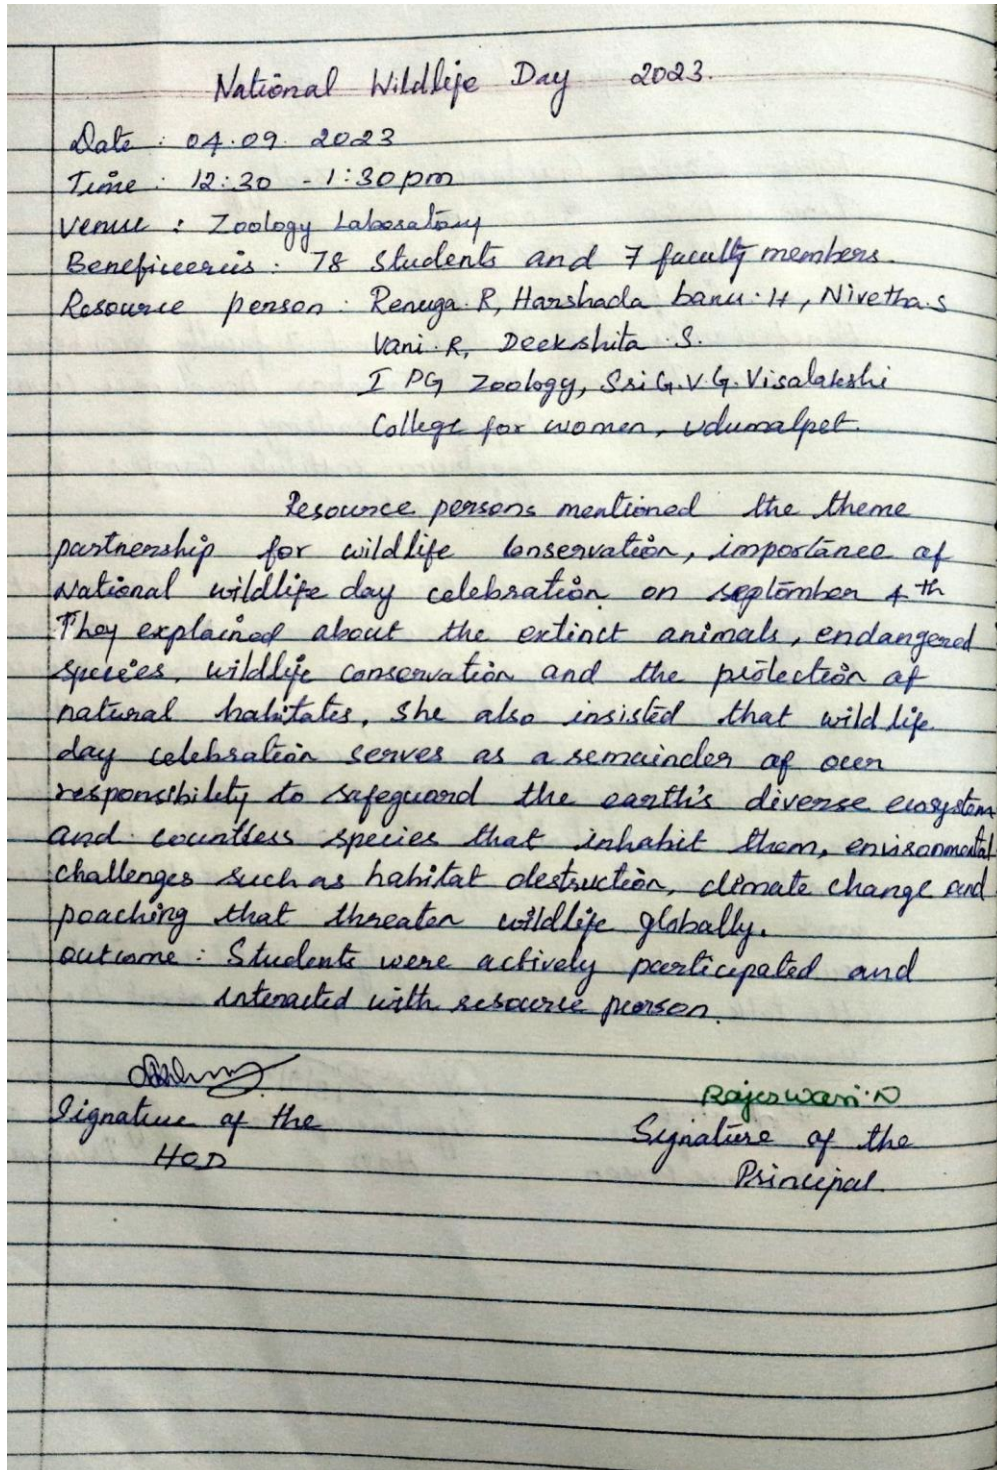 National Wildlife Day 2023.
Date : 04.09.2023
Time : 12:30 - 1:30pm
Venue : Zoology Laboratory
Beneficeeries : 78 students and 7 faculty members.
Resource person : Renuga.R, Harshada banu.H, Nivetha.S
Vani.R, Deekshita S.
I PG Zoology, Sri G.V.G. Visalakshi
College for women, udumalpet.
Resource persons mentioned the theme
partnership for wildlife conservation, importance of
National wildlife day celebration on september 4th
They explained about the extinct animals, endangered
species, wildlife conservation and the protection of
natural habitates, she also insisted that wild life
day celebration serves as a remainder of our
responsibility to safeguard the earth's diverse ecosystem
and countless species that inhabit them, environmental
challenges such as habitat destruction, climate change and
poaching that threaten wildlife globally.
outcome : Students were actively participated and
interacted with resource person.
Rajeswari.N
Signature of the
HOD
Signature of the
Principal.